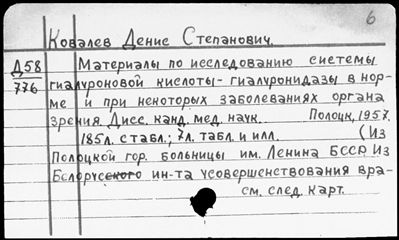 6
Ковалев Денис Степанович.
Д58
776
Материалы по исследованию системы
гиалуроновой кислоты - гиалуронидазы в нор-
ме и при некоторых заболеваниях органа
зрения. Дисс. канд. мед. наук. Полоцк, 1957.
185л. с табл.; 7л. табл. и илл. (Из
Полоцкой гор. больницы им. Ленина БССР. Из
Белорусского ин-та усовершенствования вра-
см. след. карт.